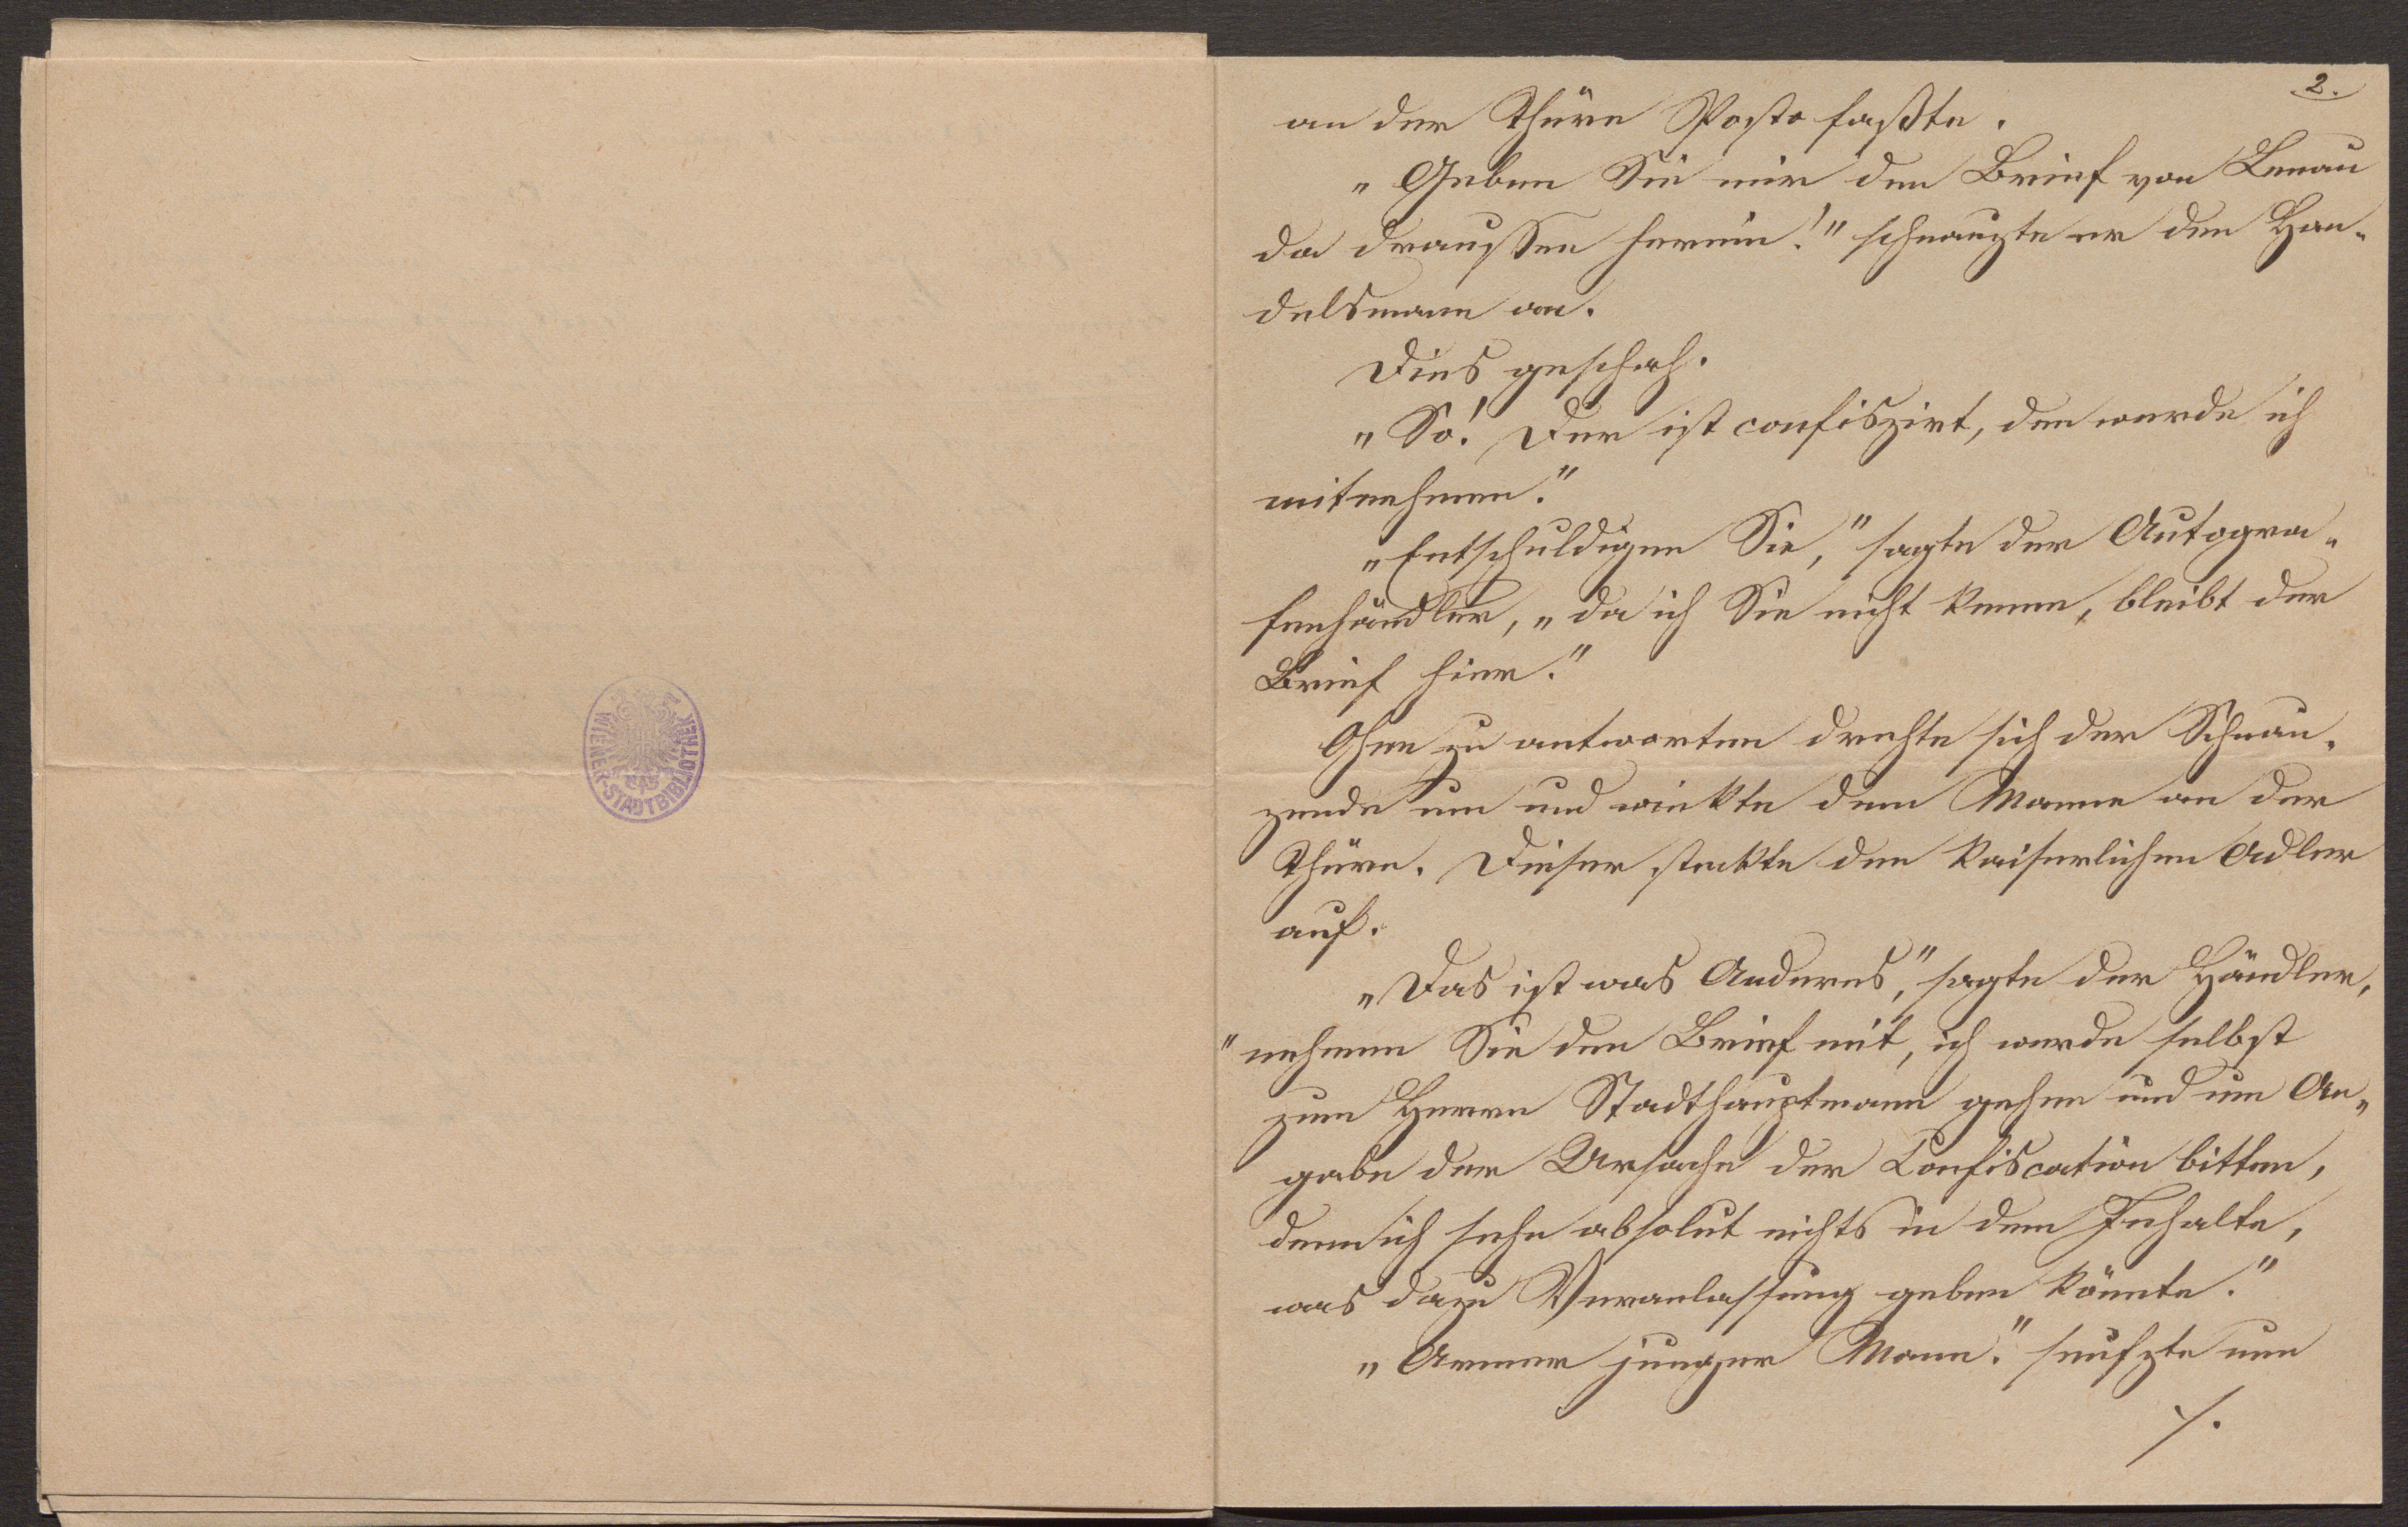 WIENER-STADTBIBLIOTHEK
2.
an der Thüre Posto faßte.
„Geben Sie mir den Brief von Lenau
da draussen herein!" schnauzte er den Han-
delsmann an.
Dies geschah.
„So! Der ist confiszirt, den werde ich
mitnehmen."
„Entschuldigen Sie," sagte der Autogra-
fenhändler, „da ich Sie nicht kenne, bleibt der
Brief hier."
Ohne zu antworten drehte sich der Schnau-
zende um und winkte dem Manne an der
Thüre. Dieser steckte den kaiserlichen Adler
auf.
„Das ist was Anderes," sagte der Händler,
"nehmen Sie den Brief mit, ich werde selbst
zum Herrn Stadthauptmann gehen und um An-
gabe der Ursache der Confiscation bitten,
denn ich sehe absolut nichts in dem Inhalte,
was dazu Veranlassung geben könnte."
„Armer junger Mann." seufzte nun
./.